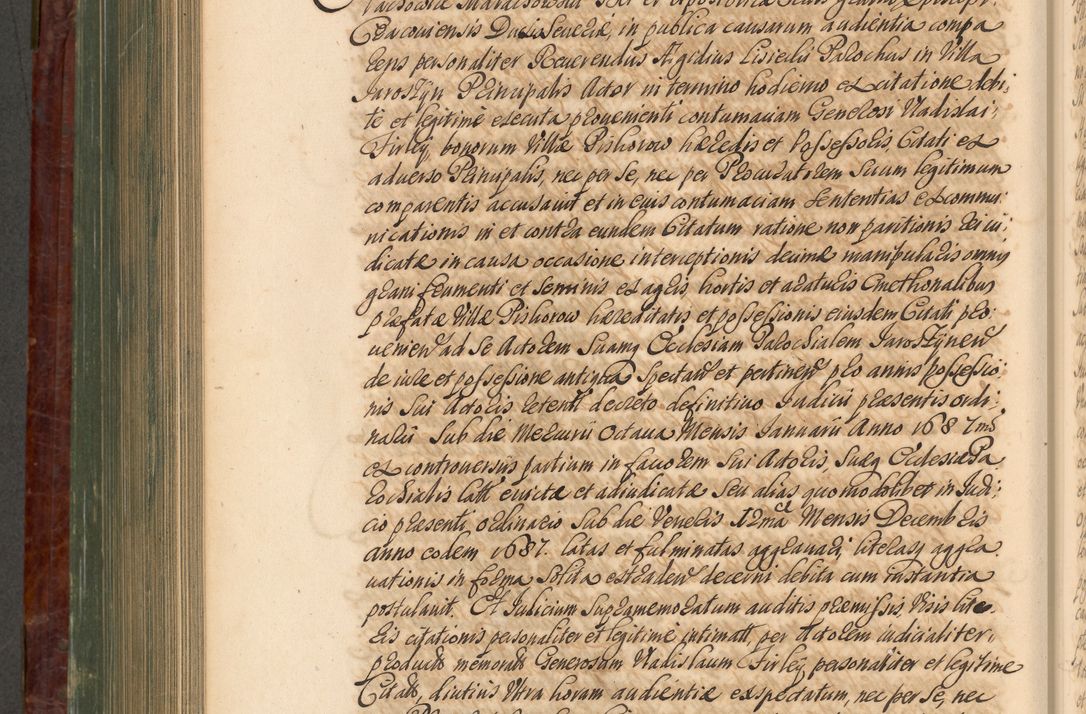 Cracoviensis Ducis Severiæ, in publica causarum audientia compa
rens personaliter Reverendus Ægidius Lisiecki Parochus in Villa
Jaroszyn Principalis Actor in termino hodierno ex citatione debi:
te et legitime executa provenienti contumaciam Generosi Vladislai
Firley, bonorum Villæ Piskorow hæredis et Possessoris, Citati ex
adverso Principalis, nec per se, nec per Procuratorem suum legitimum
comparentis accusavit et in eius contumaciam sententias excommu:
nicationis in et contra eundem Citatum ratione non paritionis rei iu:
dicatæ in causa occasione interceptionis decimæ manipularis omnis
grani frumenti et seminis ex agris, hortis et araturis Cmethonalibus
præfatæ Villæ Piskorow hæreditatis et possessionis eiusdem Citati pro:
venien ad se Actorem suamq Ecclesiam Parochialem Jaroszynen
de iure et possessione antiqua spectan et pertinen pro annis possessio:
nis sui Actoris retent decreto definitivo Iudicii præsentis ordi:
narii sub die Mercurii Octava Mensis Januarii Anno 1687mo
ex controversiis partium in favorem sui Actoris, suæq Ecclesiæ Pa
rochialis latt evictæ et adiudicatæ seu alias quomodolibet in Judi:
cio præsenti ordinario sub die Veneris 12ma Mensis Decembris
anno eodem 1687. latas et fulminatas aggravari, literasq aggra
vationis in forma solita extraden decerni debita cum instantia
postulavit. Et Judicium supramemoratum auditis præmissis, visis lite
ris citationis personaliter et legitime intimatt, per Actorem iudicialiter
productis memorato Generosum Vladislaum Firley, personaliter et legitime
Citatt, diutius Ultra horam audientiæ exspectatum, nec per se, nec